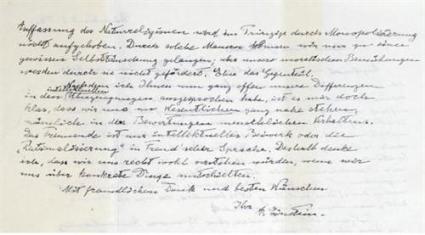 Auffassung des Naturreligiösen wird im Prinzip durch Monopolisierung
nicht aufgehoben. Durch solche Mauern können wir nur zu einer
gewissen Selbsttäuschung gelangen; aber unsere moralischen Bemühungen
werden durch sie nicht gefördert. Eher das Gegenteil.
Nachdem ich Ihnen nun ganz offen unsere Differenzen
in den intellektuellen Überzeugungen ausgesprochen habe, ist es mir doch
klar, dass wir uns im Wesentlichen ganz nahe stehen,
nämlich in den Bewertungen menschlichen Verhaltens.
Das Trennende ist nur intellektuelles Beiwerk oder die
„Rationalisierung" in Freud'scher Sprache. Deshalb denke
ich, dass wir uns recht wohl verstehen würden, wenn wir
uns über konkrete Dinge unterhielten.
Mit freundlichem Dank und besten Wünschen
Ihr A. Einstein.